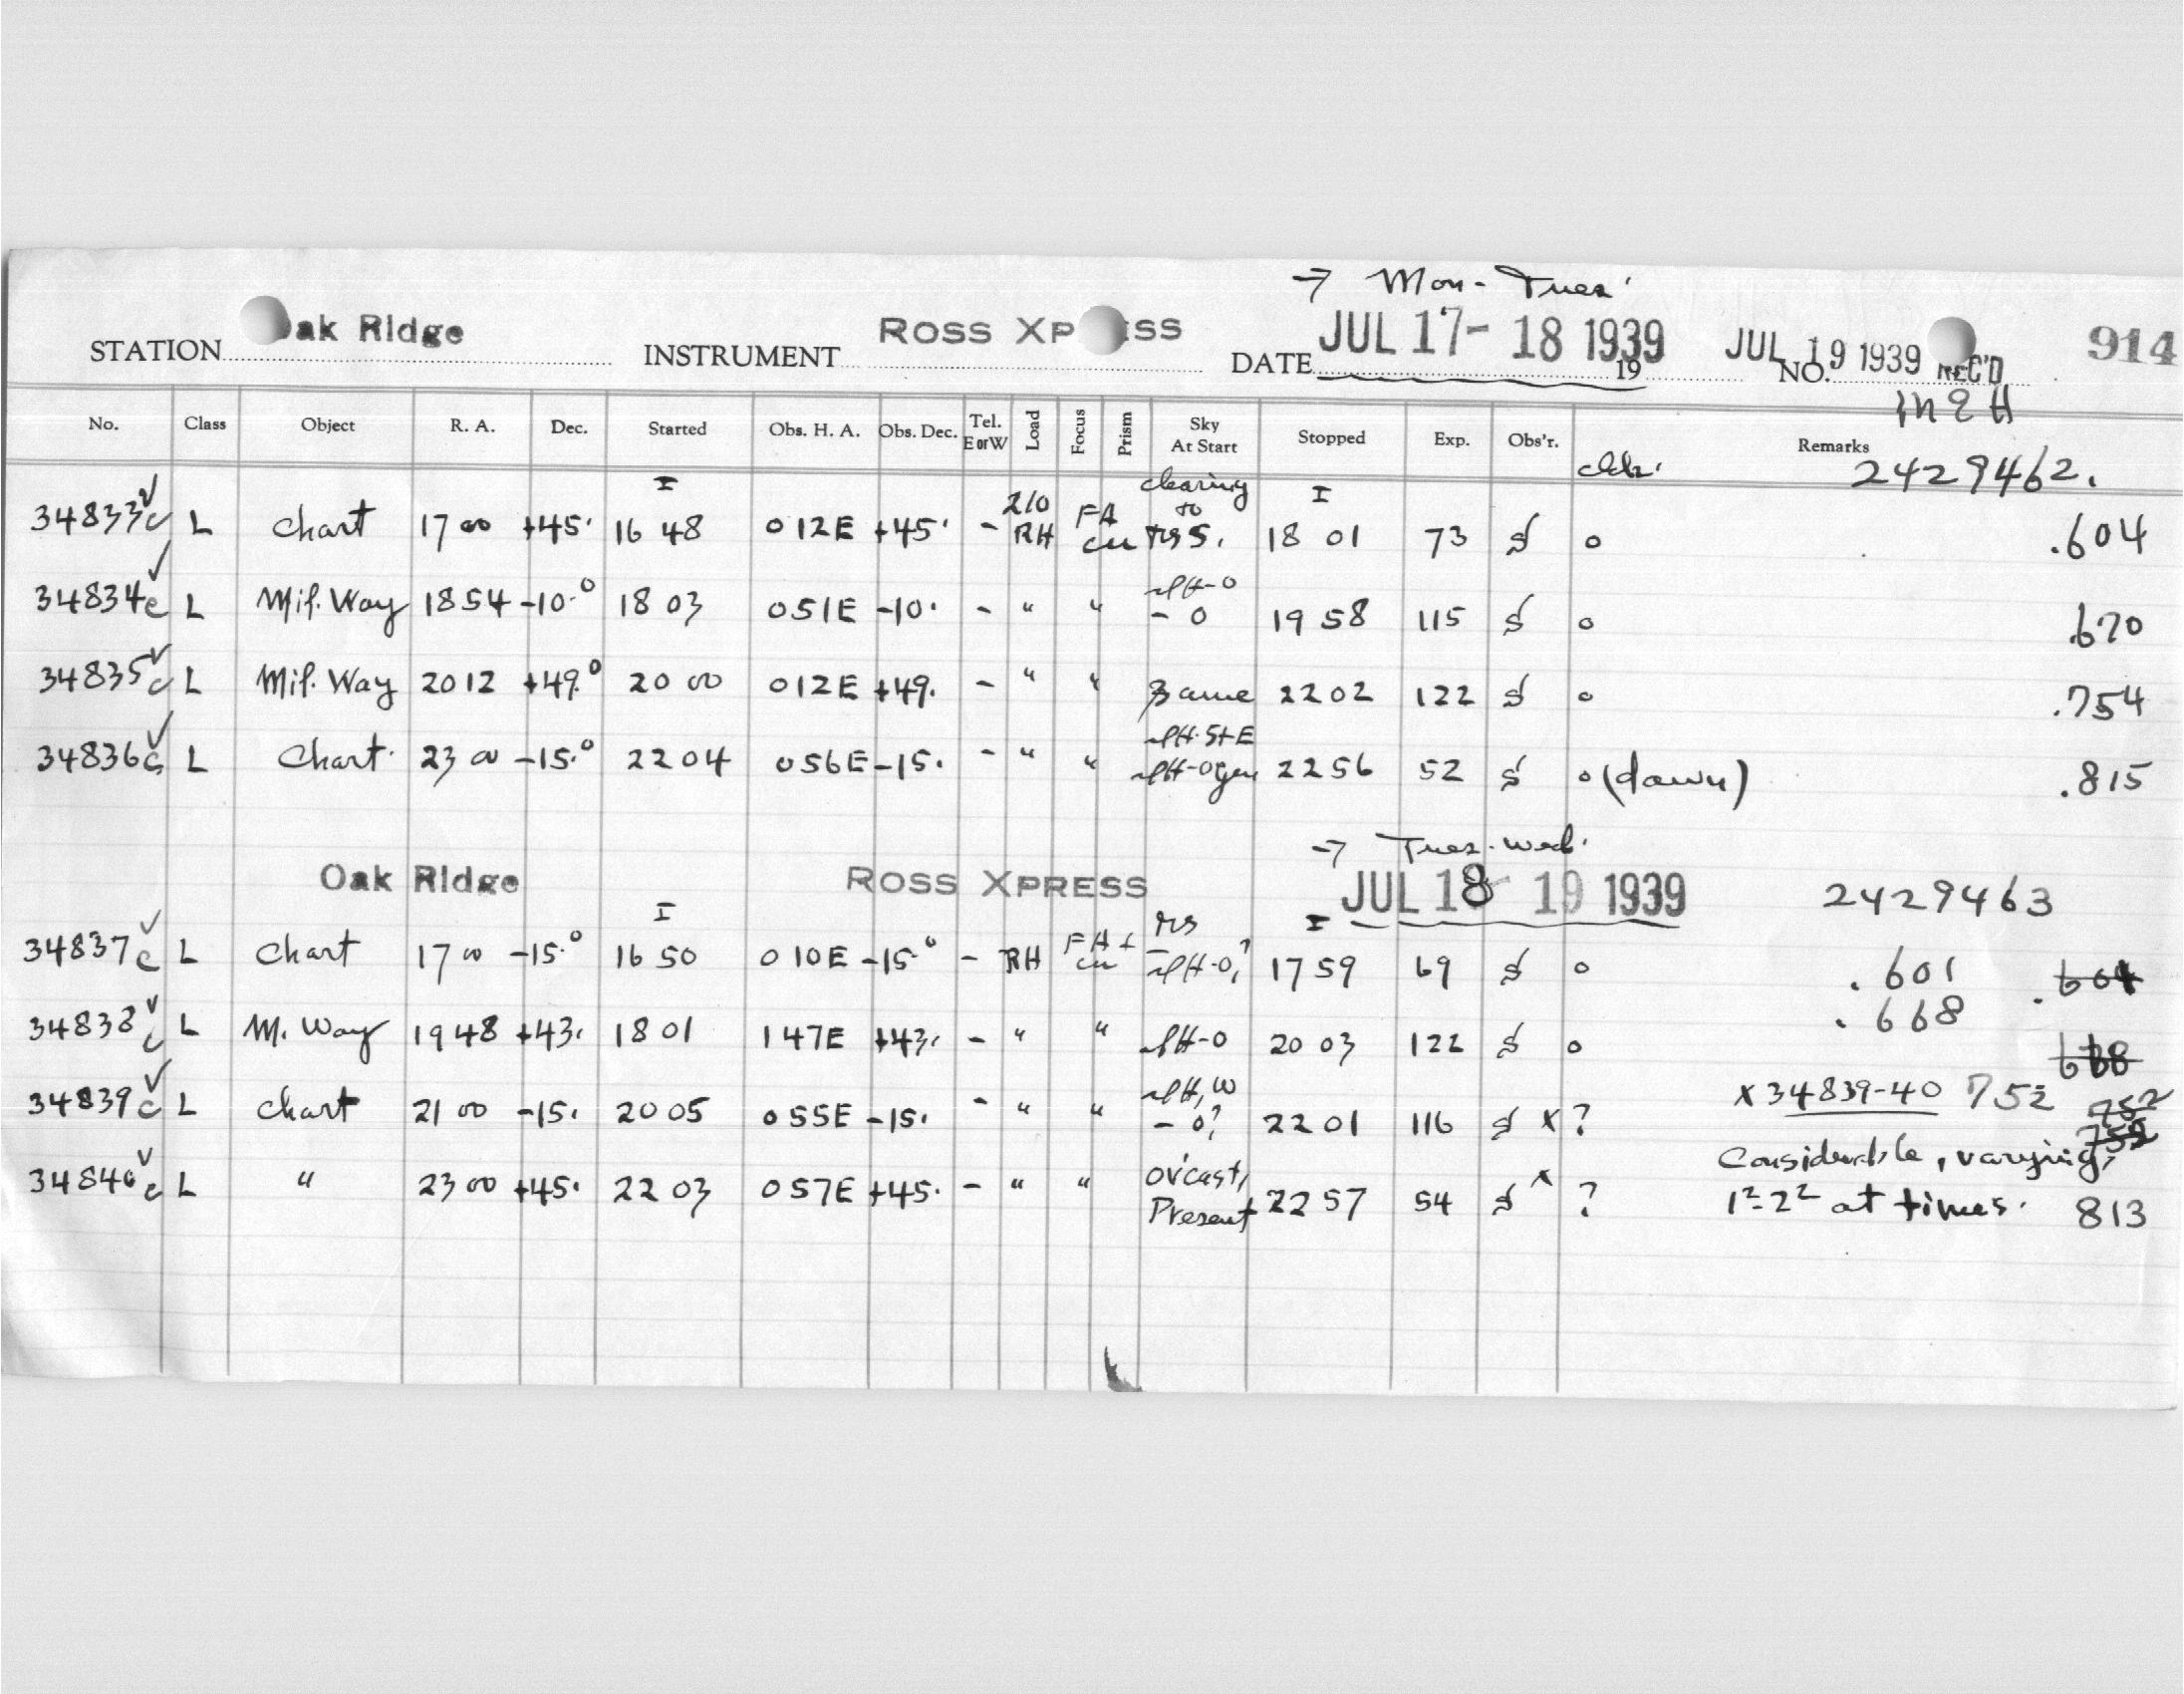 → Mon - Tues.
STATION Oak Ridge INSTRUMENT ROSS XPRESS DATE JUL 17 - 18 1939 19 JUL 19 1939 REC'D NO. 914
No. Class Object R. A. Dec. Started Obs. H. A. Obs. Dec. Tel. E or W Load Focus Prism Sky At Start Stopped Exp. Obs'r. Remarks
2429462.
34833 c L Chart 17 00 +45. I 16 48 0 12E +45. - 210 RH FA cu clearing to I 18 01 73 S o .604
34834 c L Mil. Way 18 54 -10.° 18 03 0 51E -10. - " " - 0 19 58 115 S o .670
34835 c L Mil. Way 20 12 +49.° 20 00 0 12E +49. - " " Same 22 02 122 S o .754
34836 c L Chart. 23 00 -15.° 22 04 0 56E -15. - " " 22 56 52 S o (dawn) .815
→ Tues. Wed.
Oak Ridge ROSS XPRESS JUL 18 - 19 1939 2429463
34837 c L Chart 17 00 -15.° I 16 50 0 10E -15° - RH I 17 59 69 S o .601 .604
34838 c L M. Way 19 48 +43. 18 01 1 47E +43. - " " 20 03 122 S o .668 668
34839 c L Chart 21 00 -15. 20 05 0 55E -15. - " " - 0? 22 01 116 S x ? x 34839-40 752 752
34840 c L " 23 00 +45. 22 03 0 57E +45. - " " ov'cast, Present 22 57 54 S x ? Considerable, varying,
1²-2² at times. 813